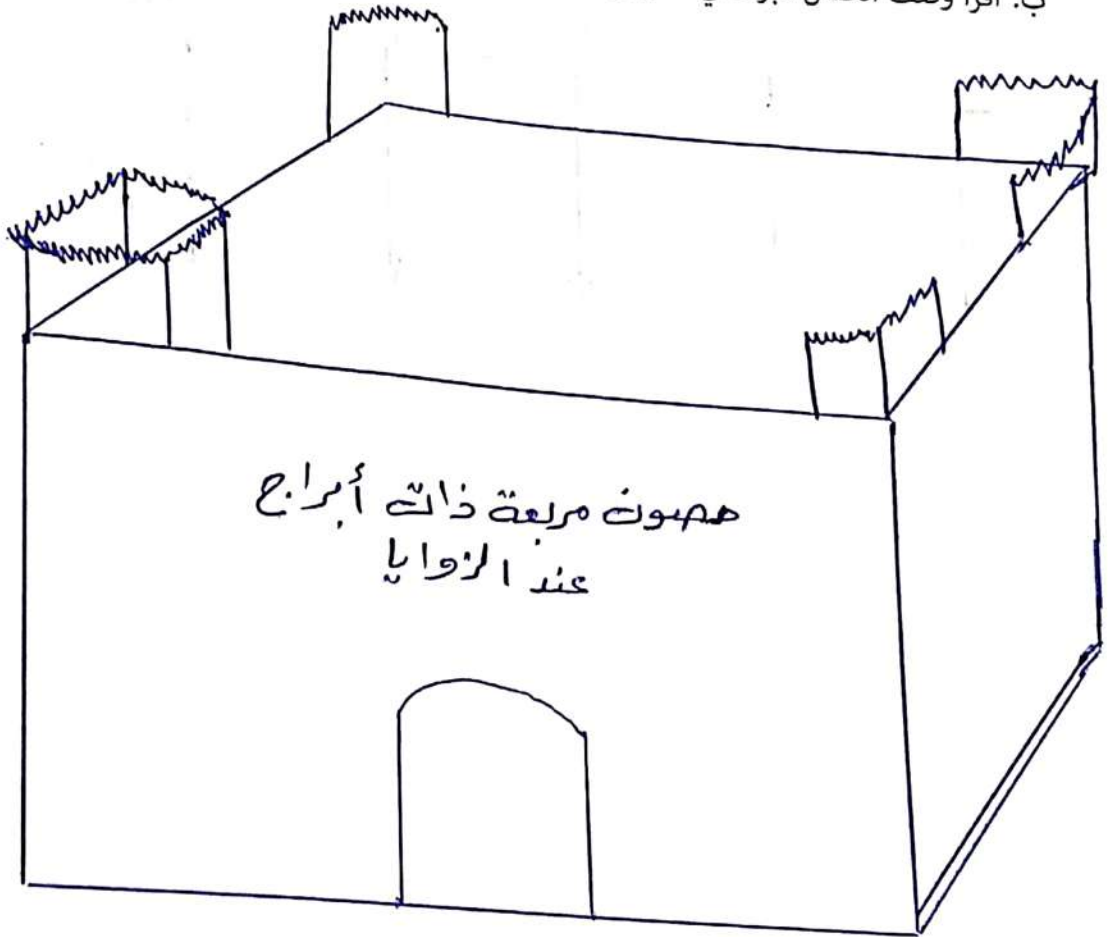 ب. اقرأ
حصون مربعة ذات أبراج
عند الزوايا